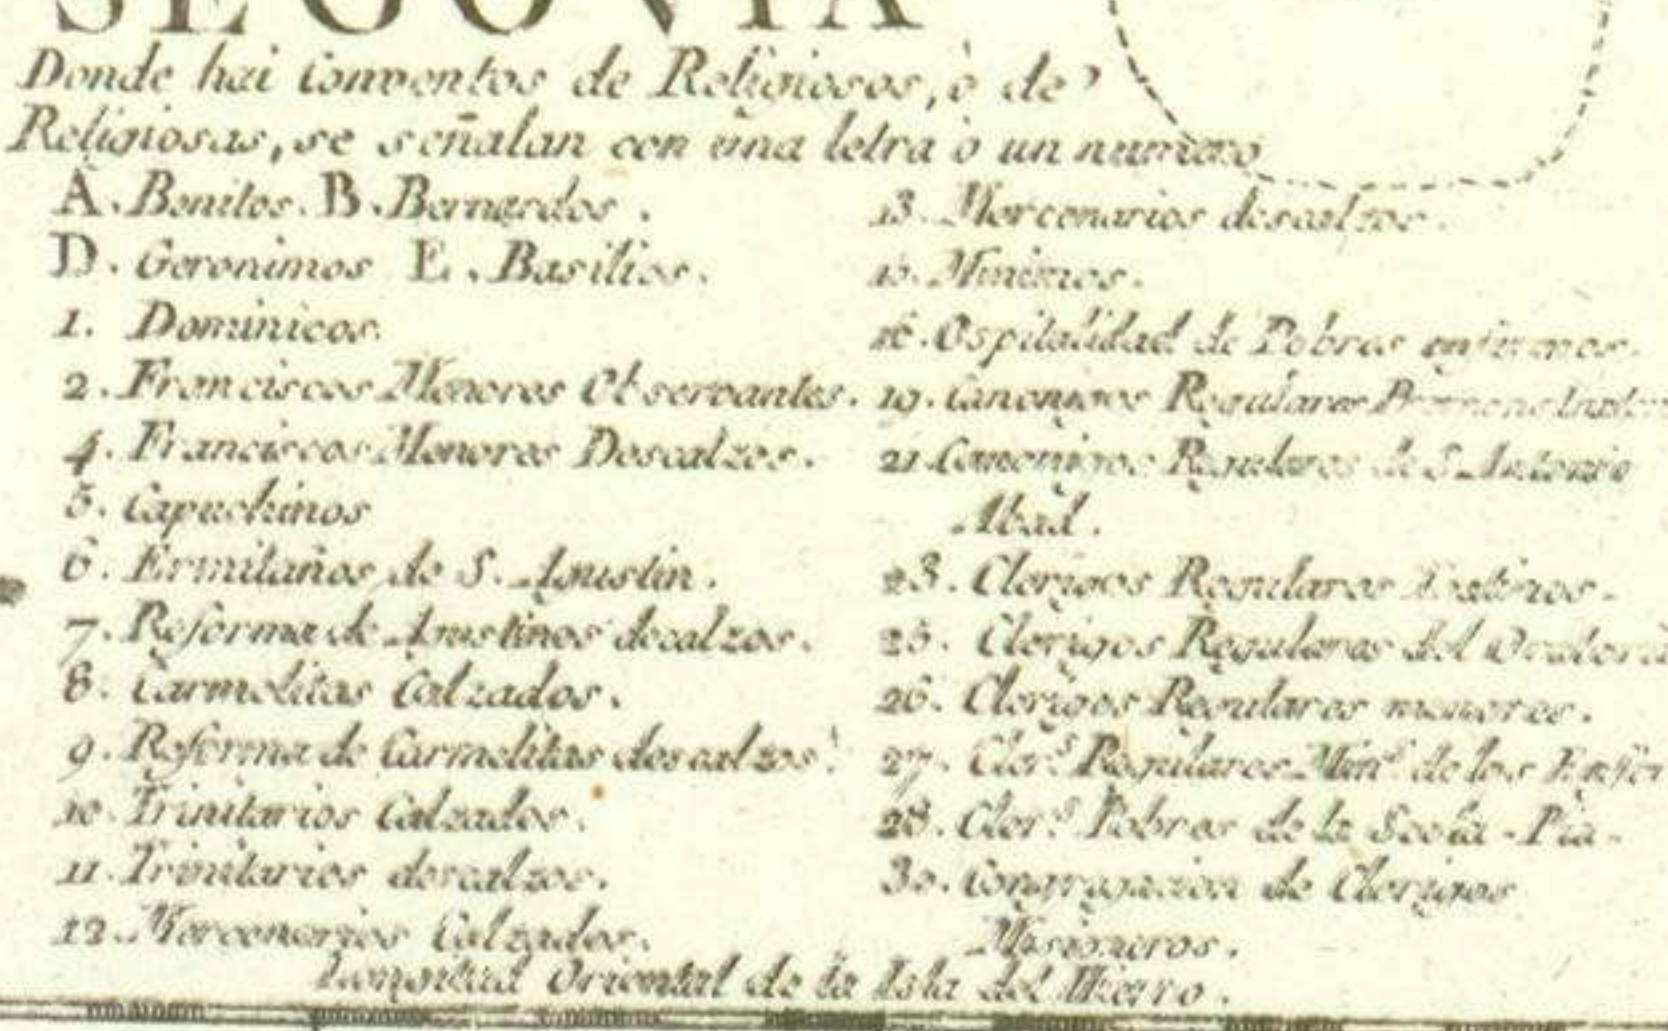 SEGOVIA
Donde hai Conventos de Religiosos, ò de
Religiosas, se señalan con una letra ò un numero
A. Benitos. B. Bernardos.
D. Geronimos E. Basilios.
1. Dominicos.
2. Franciscos Menores Observantes.
4. Franciscos Menores Descalzos.
5. Capuchinos
6. Ermitaños de S. Agustin.
7. Reforma de Agustinos decalzos.
8. Carmelitas Calzados.
9. Reforma de Carmelitas descalzos.
10. Trinitarios Calzados.
11. Trinitarios descalzos.
12. Mercenarios Calzados.
13. Mercenarios descalzos.
Minimos.
16. Ospitalidad de Pobres enfermos.
19. Canonigos Regulares
21. Canonigos Regulares de S. Antonio
Abad.
23. Clerigos Regulares
25. Clerigos Regulares del Oratorio
26. Clerigos Regulares menores.
27. Cler.s Regulares Min.s de los Enfer
28. Cler.s Pobres de la Scola-Pia.
30. Congregacion de Clerigos
Misioneros.
Longitud Oriental de la Isla del Hierro.